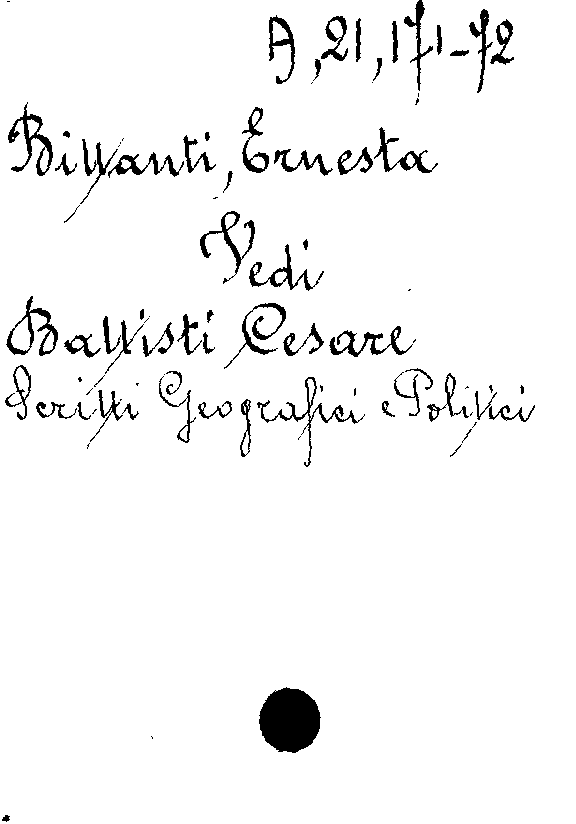 A, 21, 171-72
Bittanti, Ernesta
Vedi
Battisti Cesare
Scritti Geografici e Politici